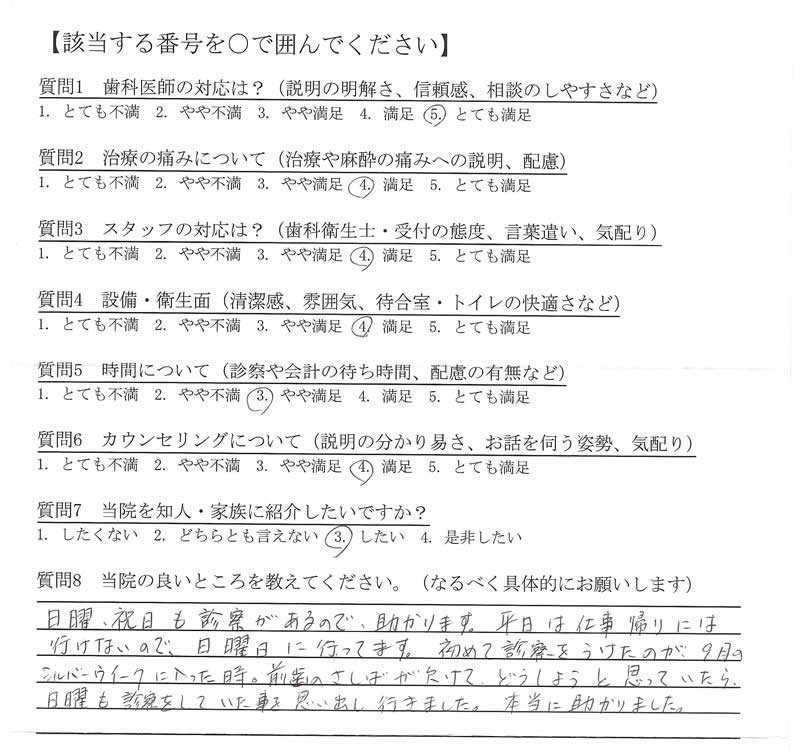 【該当する番号を○で囲んでください】
質問1 歯科医師の対応は？（説明の明解さ、信頼感、相談のしやすさなど）
1. とても不満 2. やや不満 3. やや満足 4. 満足 5. とても満足
質問2 治療の痛みについて（治療や麻酔の痛みへの説明、配慮）
1. とても不満 2. やや不満 3. やや満足 4. 満足 5. とても満足
質問3 スタッフの対応は？（歯科衛生士・受付の態度、言葉遣い、気配り）
1. とても不満 2. やや不満 3. やや満足 4. 満足 5. とても満足
質問4 設備・衛生面（清潔感、雰囲気、待合室・トイレの快適さなど）
1. とても不満 2. やや不満 3. やや満足 4. 満足 5. とても満足
質問5 時間について（診察や会計の待ち時間、配慮の有無など）
1. とても不満 2. やや不満 3. やや満足 4. 満足 5. とても満足
質問6 カウンセリングについて（説明の分かり易さ、お話を伺う姿勢、気配り）
1. とても不満 2. やや不満 3. やや満足 4. 満足 5. とても満足
質問7 当院を知人・家族に紹介したいですか？
1. したくない 2. どちらとも言えない 3. したい 4. 是非したい
質問8 当院の良いところを教えてください。（なるべく具体的にお願いします）
日曜、祝日も診察があるので、助かります。平日は仕事帰りには
行けないので、日曜日に行ってます。初めて診察をうけたのが、9月の
シルバーウイークに入った時。前歯のさしばが欠けて、どうしようと思っていたら、
日曜も診察をしていた事を思い出し行きました。本当に助かりました。